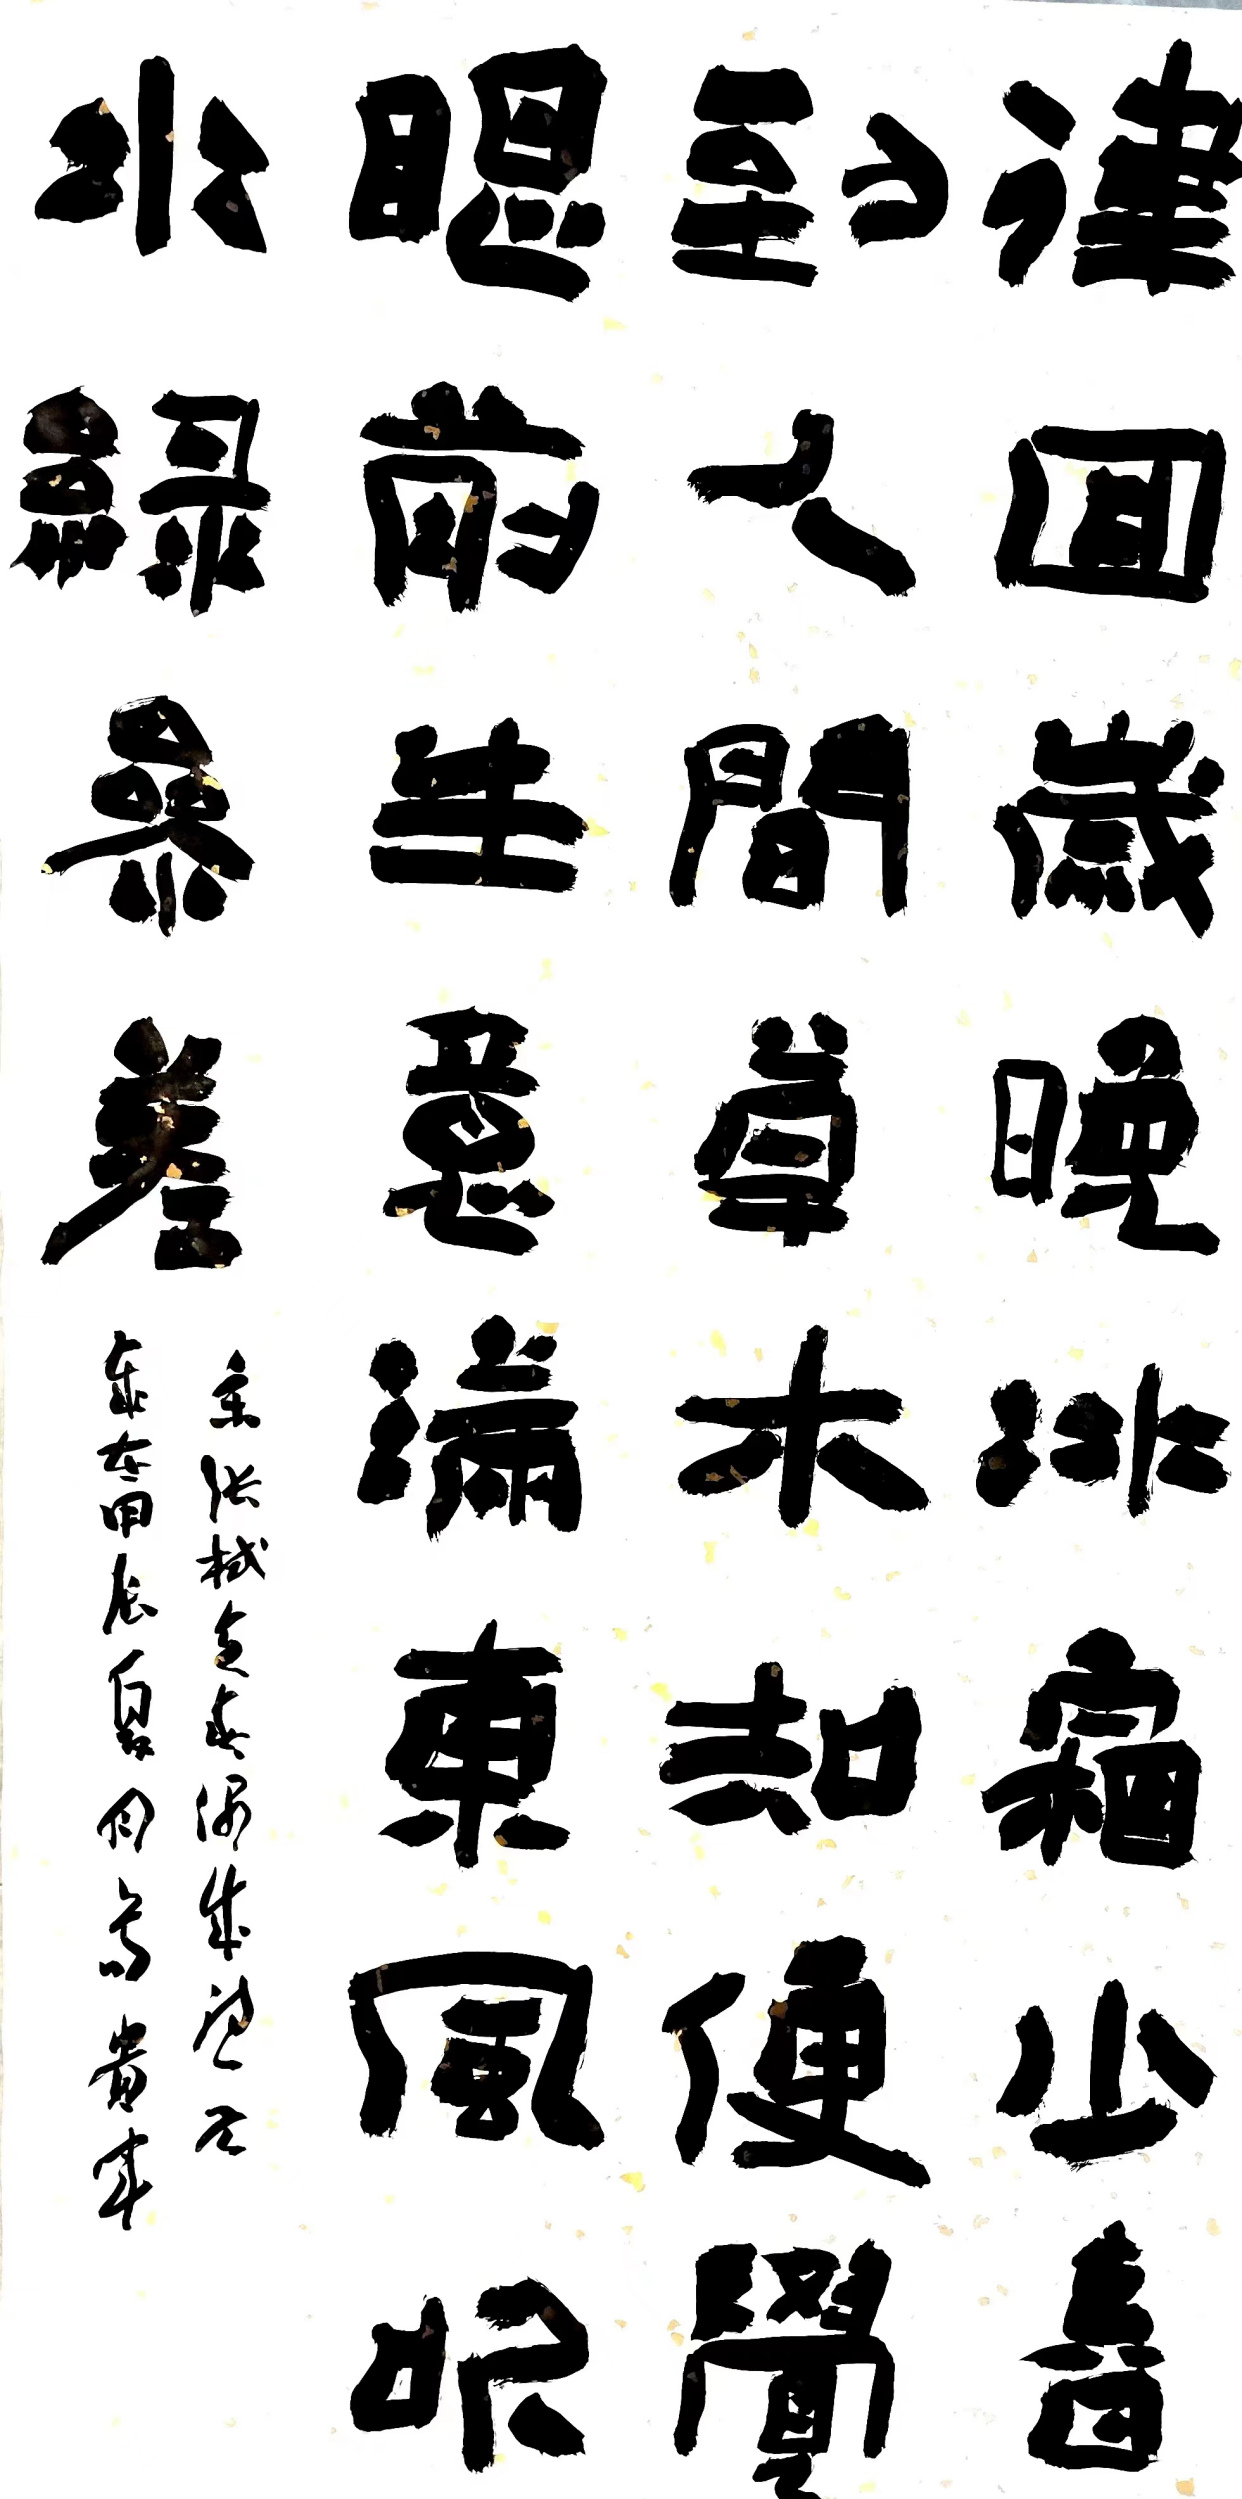 律回歲晚冰霜少春
到人間草木知便覺
眼前生意滿東風吹
水綠參差
宋張栻立春偶成
歲在甲辰夏月